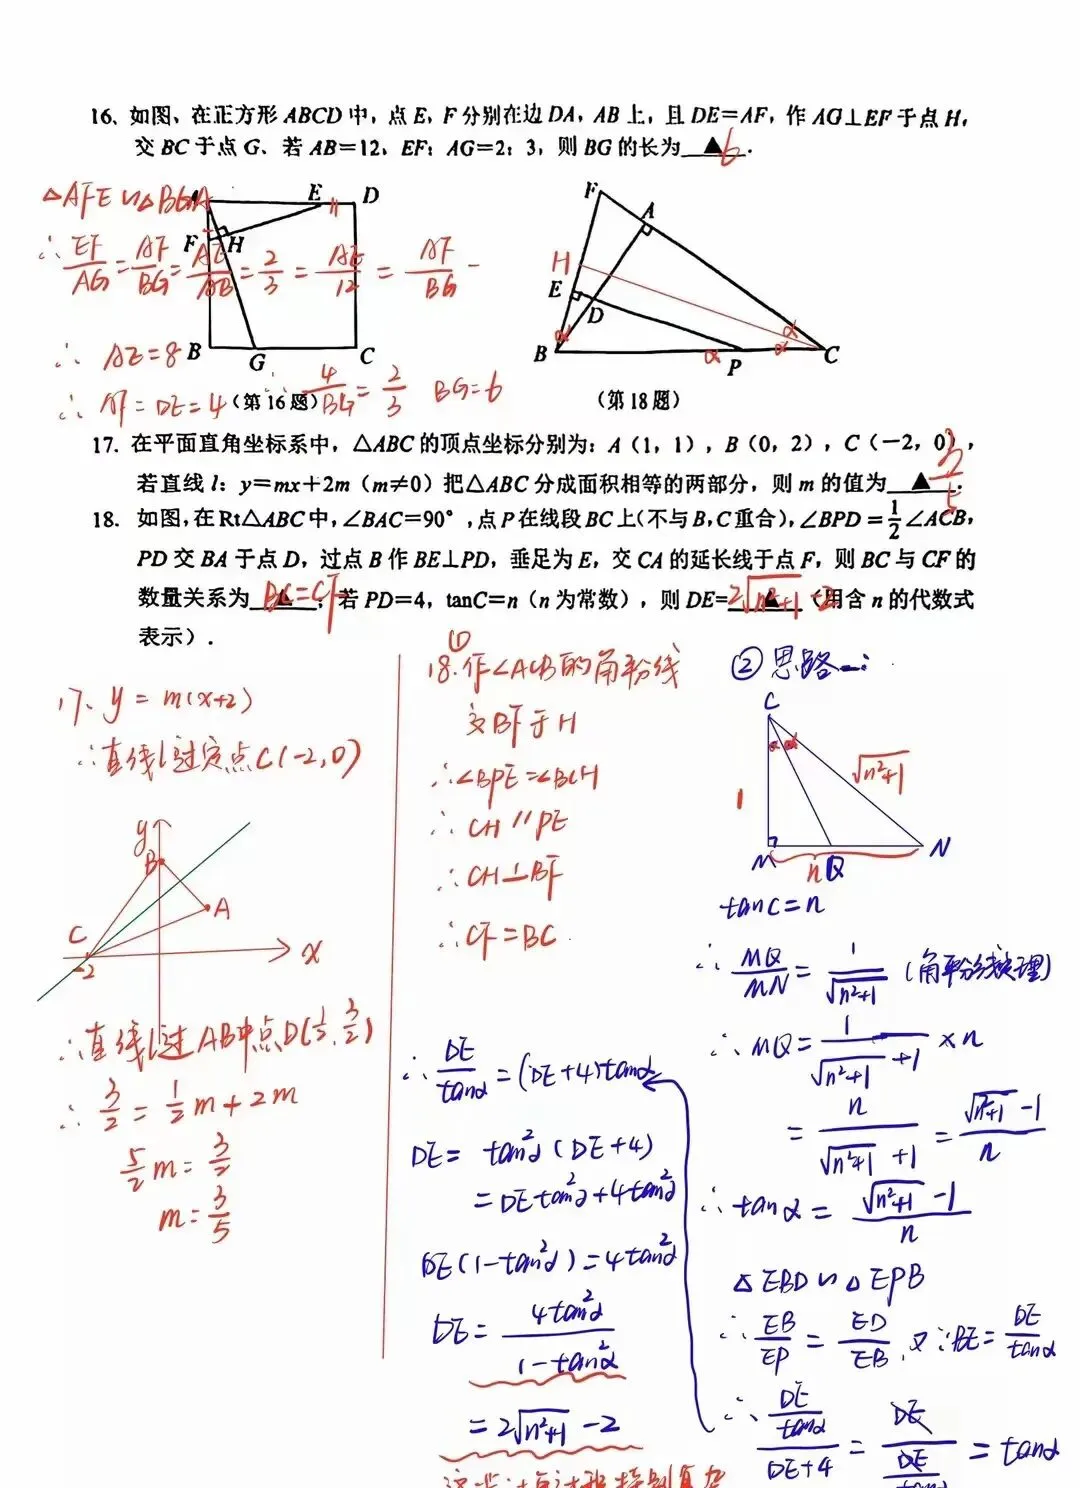 16、如图、在正方形 ABCD 中，点 E，F 分别在边 DA，AB 上，且 DE=AF，作 AG⊥EF 于点 H，
交 BC 于点 G、若 AB=12，EF：AG=2：3，则 BG 的长为 ▲ 6 ．
△AFE∽△BGA
∴ EF/AG = AF/BG = AE/AB = 2/3 = AE/12 = AF/BG
∴ AE=8
∴ AF=DE=4
∴ 4/BG = 2/3 BG=6
E D
F H
B G C
(第 16 题)
F A
H
E D
B P C
α α α α
(第 18 题)
17. 在平面直角坐标系中，△ABC 的顶点坐标分别为：A（1，1），B（0，2），C（－2，0），
若直线 l：y=mx+2m（m≠0）把△ABC 分成面积相等的两部分，则 m 的值为 ▲ 3/5 ．
18. 如图，在 Rt△ABC 中，∠BAC=90°，点 P 在线段 BC 上(不与 B，C 重合)，∠BPD=1/2∠ACB，
PD 交 BA 于点 D，过点 B 作 BE⊥PD，垂足为 E，交 CA 的延长线于点 F，则 BC 与 CF 的
数量关系为 BC=CF ；若 PD=4，tanC=n（n 为常数），则 DE= 2√(n²+1) -2 （用含 n 的代数式
表示）．
17、y = m(x+2)
∴直线l过定点C(-2,0)
y
B
A
C
-2
x
∴直线l过AB中点D(1/2, 3/2)
∴ 3/2 = 1/2 m + 2m
5/2 m = 3/2
m = 3/5
①
18.作∠ACB的角平分线
交BF于H
∴∠BPE=∠BCH
∴CH∥PE
∴CH⊥BF
∴CF=BC
∴ DE/tanα = (DE+4)tanα
DE = tan²α (DE+4)
= DE tan²α + 4tan²α
DE(1-tan²α) = 4tan²α
DE = 4tan²α/(1-tan²α)
= 2√(n²+1) - 2
②思路一：
C
α α
1
√(n²+1)
M N
n Q
tanC=n
∴ MQ/MN = 1/√(n²+1) (角平分线定理)
∴ MQ = 1/(√(n²+1) +1) × n
= n/(√(n²+1) +1) = (√(n²+1) -1)/n
∴ tanα = (√(n²+1) -1)/n
△EBD∽△EPB
∴ EB/EP = ED/EB，又∵BE= DE/tanα
∴ (DE/tanα)/(DE+4) = DE/(DE/tanα) = tanα